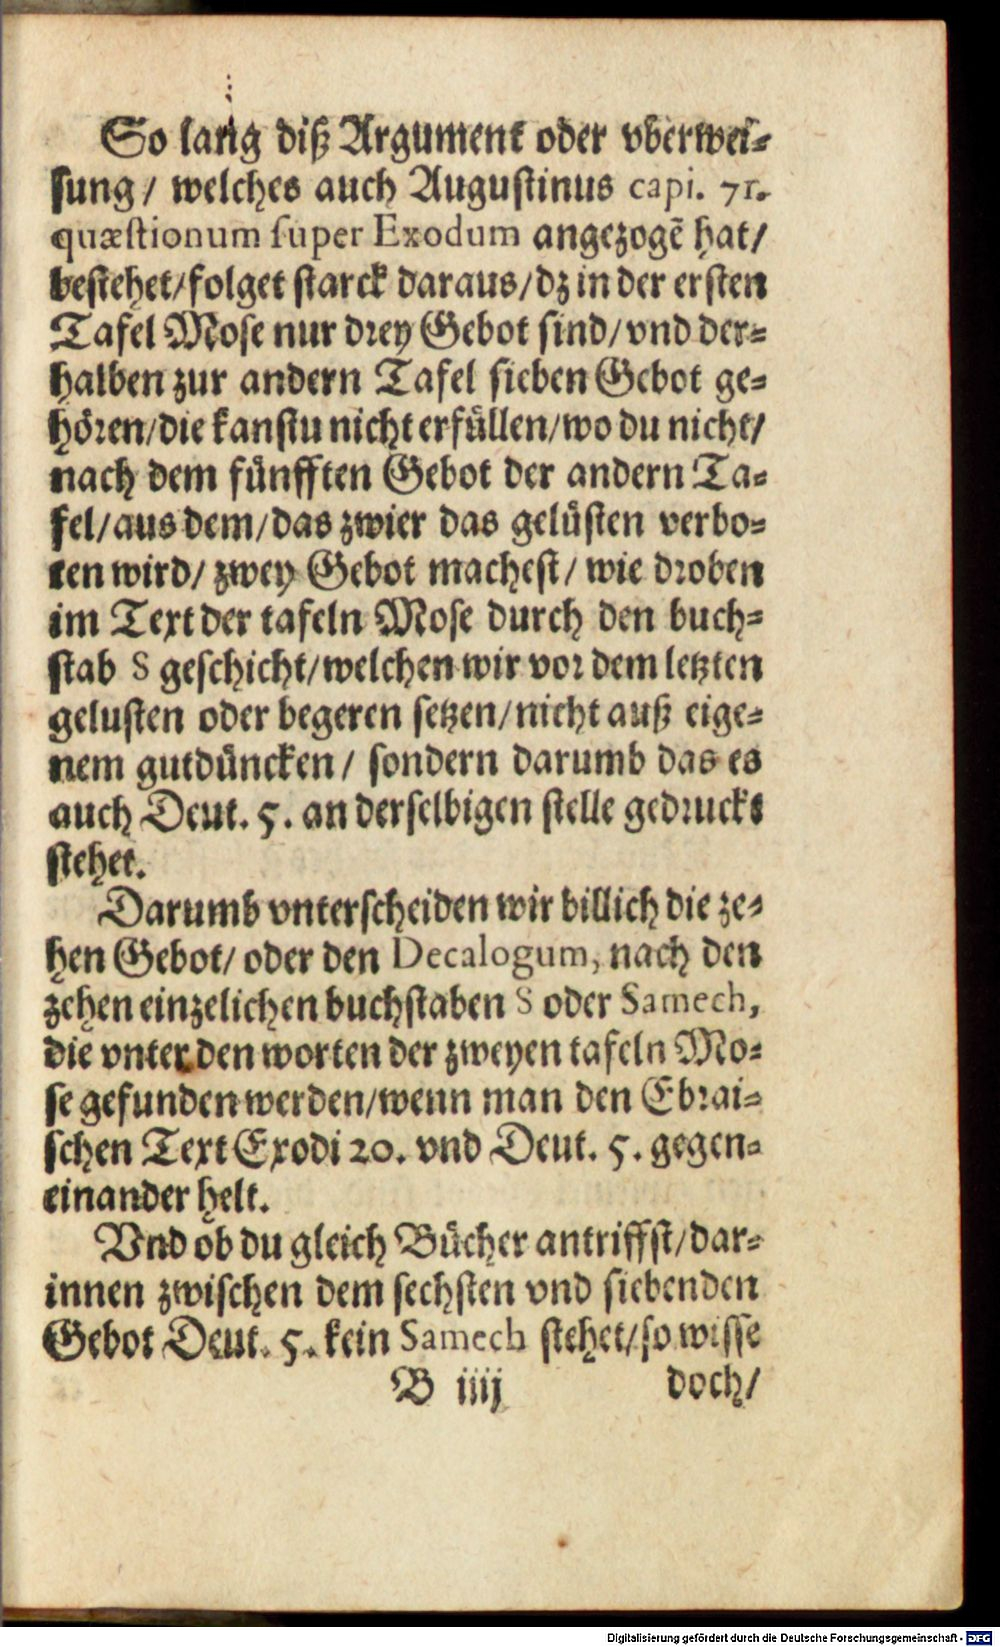 So lang diß Argument oder vberwei-
sung/ welches auch Augustinus capi. 71.
quæstionum super Exodum angezogẽ hat/
bestehet/folget starck daraus/dz in der ersten
Tafel Mose nur drey Gebot sind/vnd der-
halben zur andern Tafel sieben Gebot ge-
hören/die kanstu nicht erfüllen/wo du nicht/
nach dem fünfften Gebot der andern Ta-
fel/aus dem/das zwier das gelüsten verbo-
ten wird/ zwey Gebot machest/ wie droben
im Text der tafeln Mose durch den buch-
stab S geschicht/welchen wir vor dem letzten
gelusten oder begeren setzen/nicht auß eige-
nem gutdüncken/ sondern darumb das es
auch Deut. 5. an derselbigen stelle gedruckt
stehet.
Darumb vnterscheiden wir billich die ze-
hen Gebot/ oder den Decalogum, nach den
zehen einzelichen buchstaben S oder Samech,
die vnter den worten der zweyen tafeln Mo-
se gefunden werden/wenn man den Ebrai-
schen Text Exodi 20. vnd Deut. 5. gegen-
einander helt.
Vnd ob du gleich Bücher antriffst/dar-
innen zwischen dem sechsten vnd siebenden
Gebot Deut. 5. kein Samech stehet/so wisse
B iiij doch/
Digitalisierung gefördert durch die Deutsche Forschungsgemeinschaft - DFG